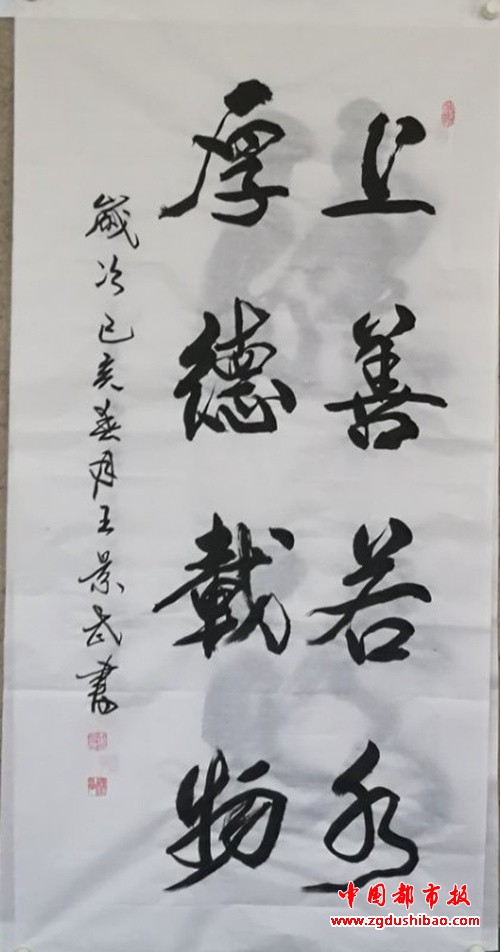 上善若水
厚德載物
歲次己亥春月王景武書
中国都市报
www.zgdushibao.com